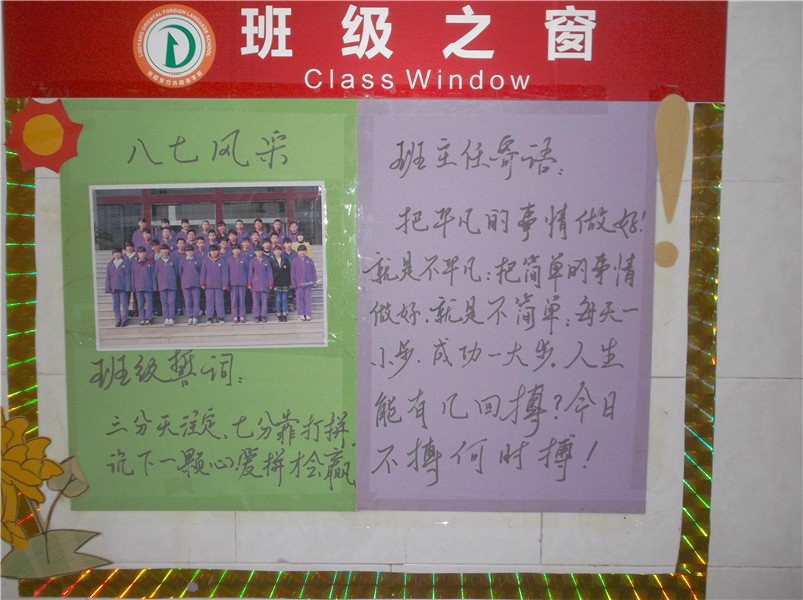 LUOYANG ORIENTAL FOREIGN LANGUAGE SCHOOL
班级之窗
Class Window
八七风采
班级誓词:
三分天注定、七分靠打拼,
沉下一颗心,爱拼才会赢
班主任寄语:
把平凡的事情做好!
就是不平凡;把简单的事情
做好,就是不简单;每天一
小步,成功一大步。人生
能有几回搏?今日
不搏何时搏!